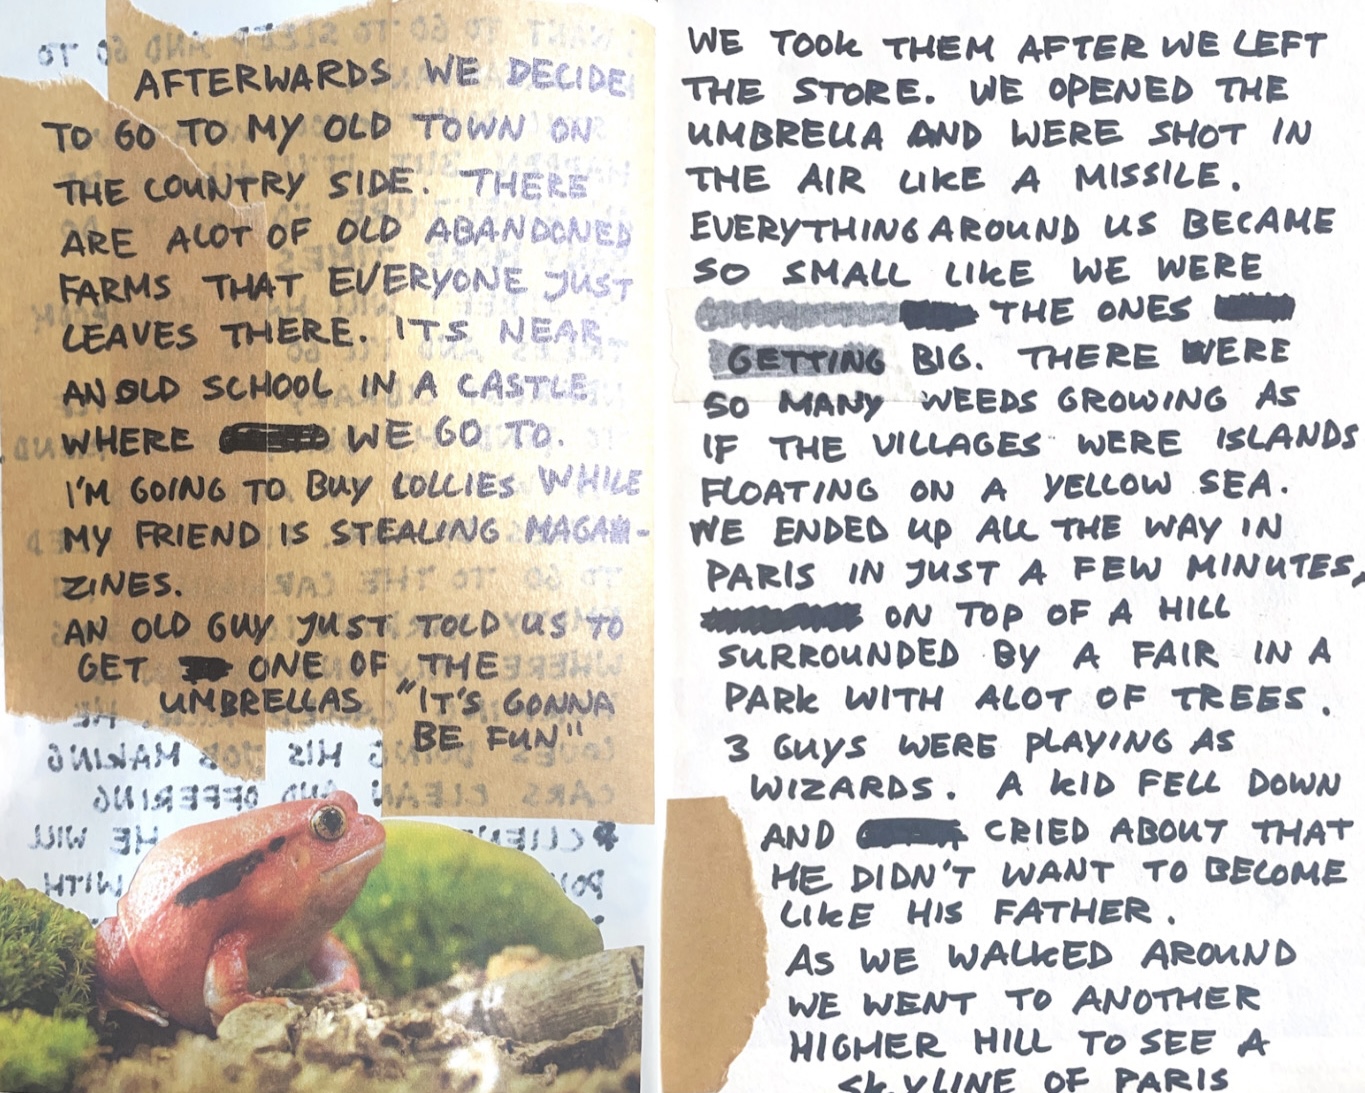 AFTERWARDS WE DECIDE
TO GO TO MY OLD TOWN ON
THE COUNTRY SIDE. THERE
ARE ALOT OF OLD ABANDONED
FARMS THAT EVERYONE JUST
LEAVES THERE. ITS NEAR
AN OLD SCHOOL IN A CASTLE
WHERE WE GO TO.
I'M GOING TO BUY LOLLIES WHILE
MY FRIEND IS STEALING MAGA-
ZINES.
AN OLD GUY JUST TOLD US TO
GET ONE OF THE
UMBRELLAS "IT'S GONNA
BE FUN"
WE TOOK THEM AFTER WE LEFT
THE STORE. WE OPENED THE
UMBRELLA AND WERE SHOT IN
THE AIR LIKE A MISSILE.
EVERYTHING AROUND US BECAME
SO SMALL LIKE WE WERE
THE ONES
GETTING BIG. THERE WERE
SO MANY WEEDS GROWING AS
IF THE VILLAGES WERE ISLANDS
FLOATING ON A YELLOW SEA.
WE ENDED UP ALL THE WAY IN
PARIS IN JUST A FEW MINUTES,
ON TOP OF A HILL
SURROUNDED BY A FAIR IN A
PARK WITH ALOT OF TREES.
3 GUYS WERE PLAYING AS
WIZARDS. A KID FELL DOWN
AND CRIED ABOUT THAT
HE DIDN'T WANT TO BECOME
LIKE HIS FATHER.
AS WE WALKED AROUND
WE WENT TO ANOTHER
HIGHER HILL TO SEE A
SKYLINE OF PARIS